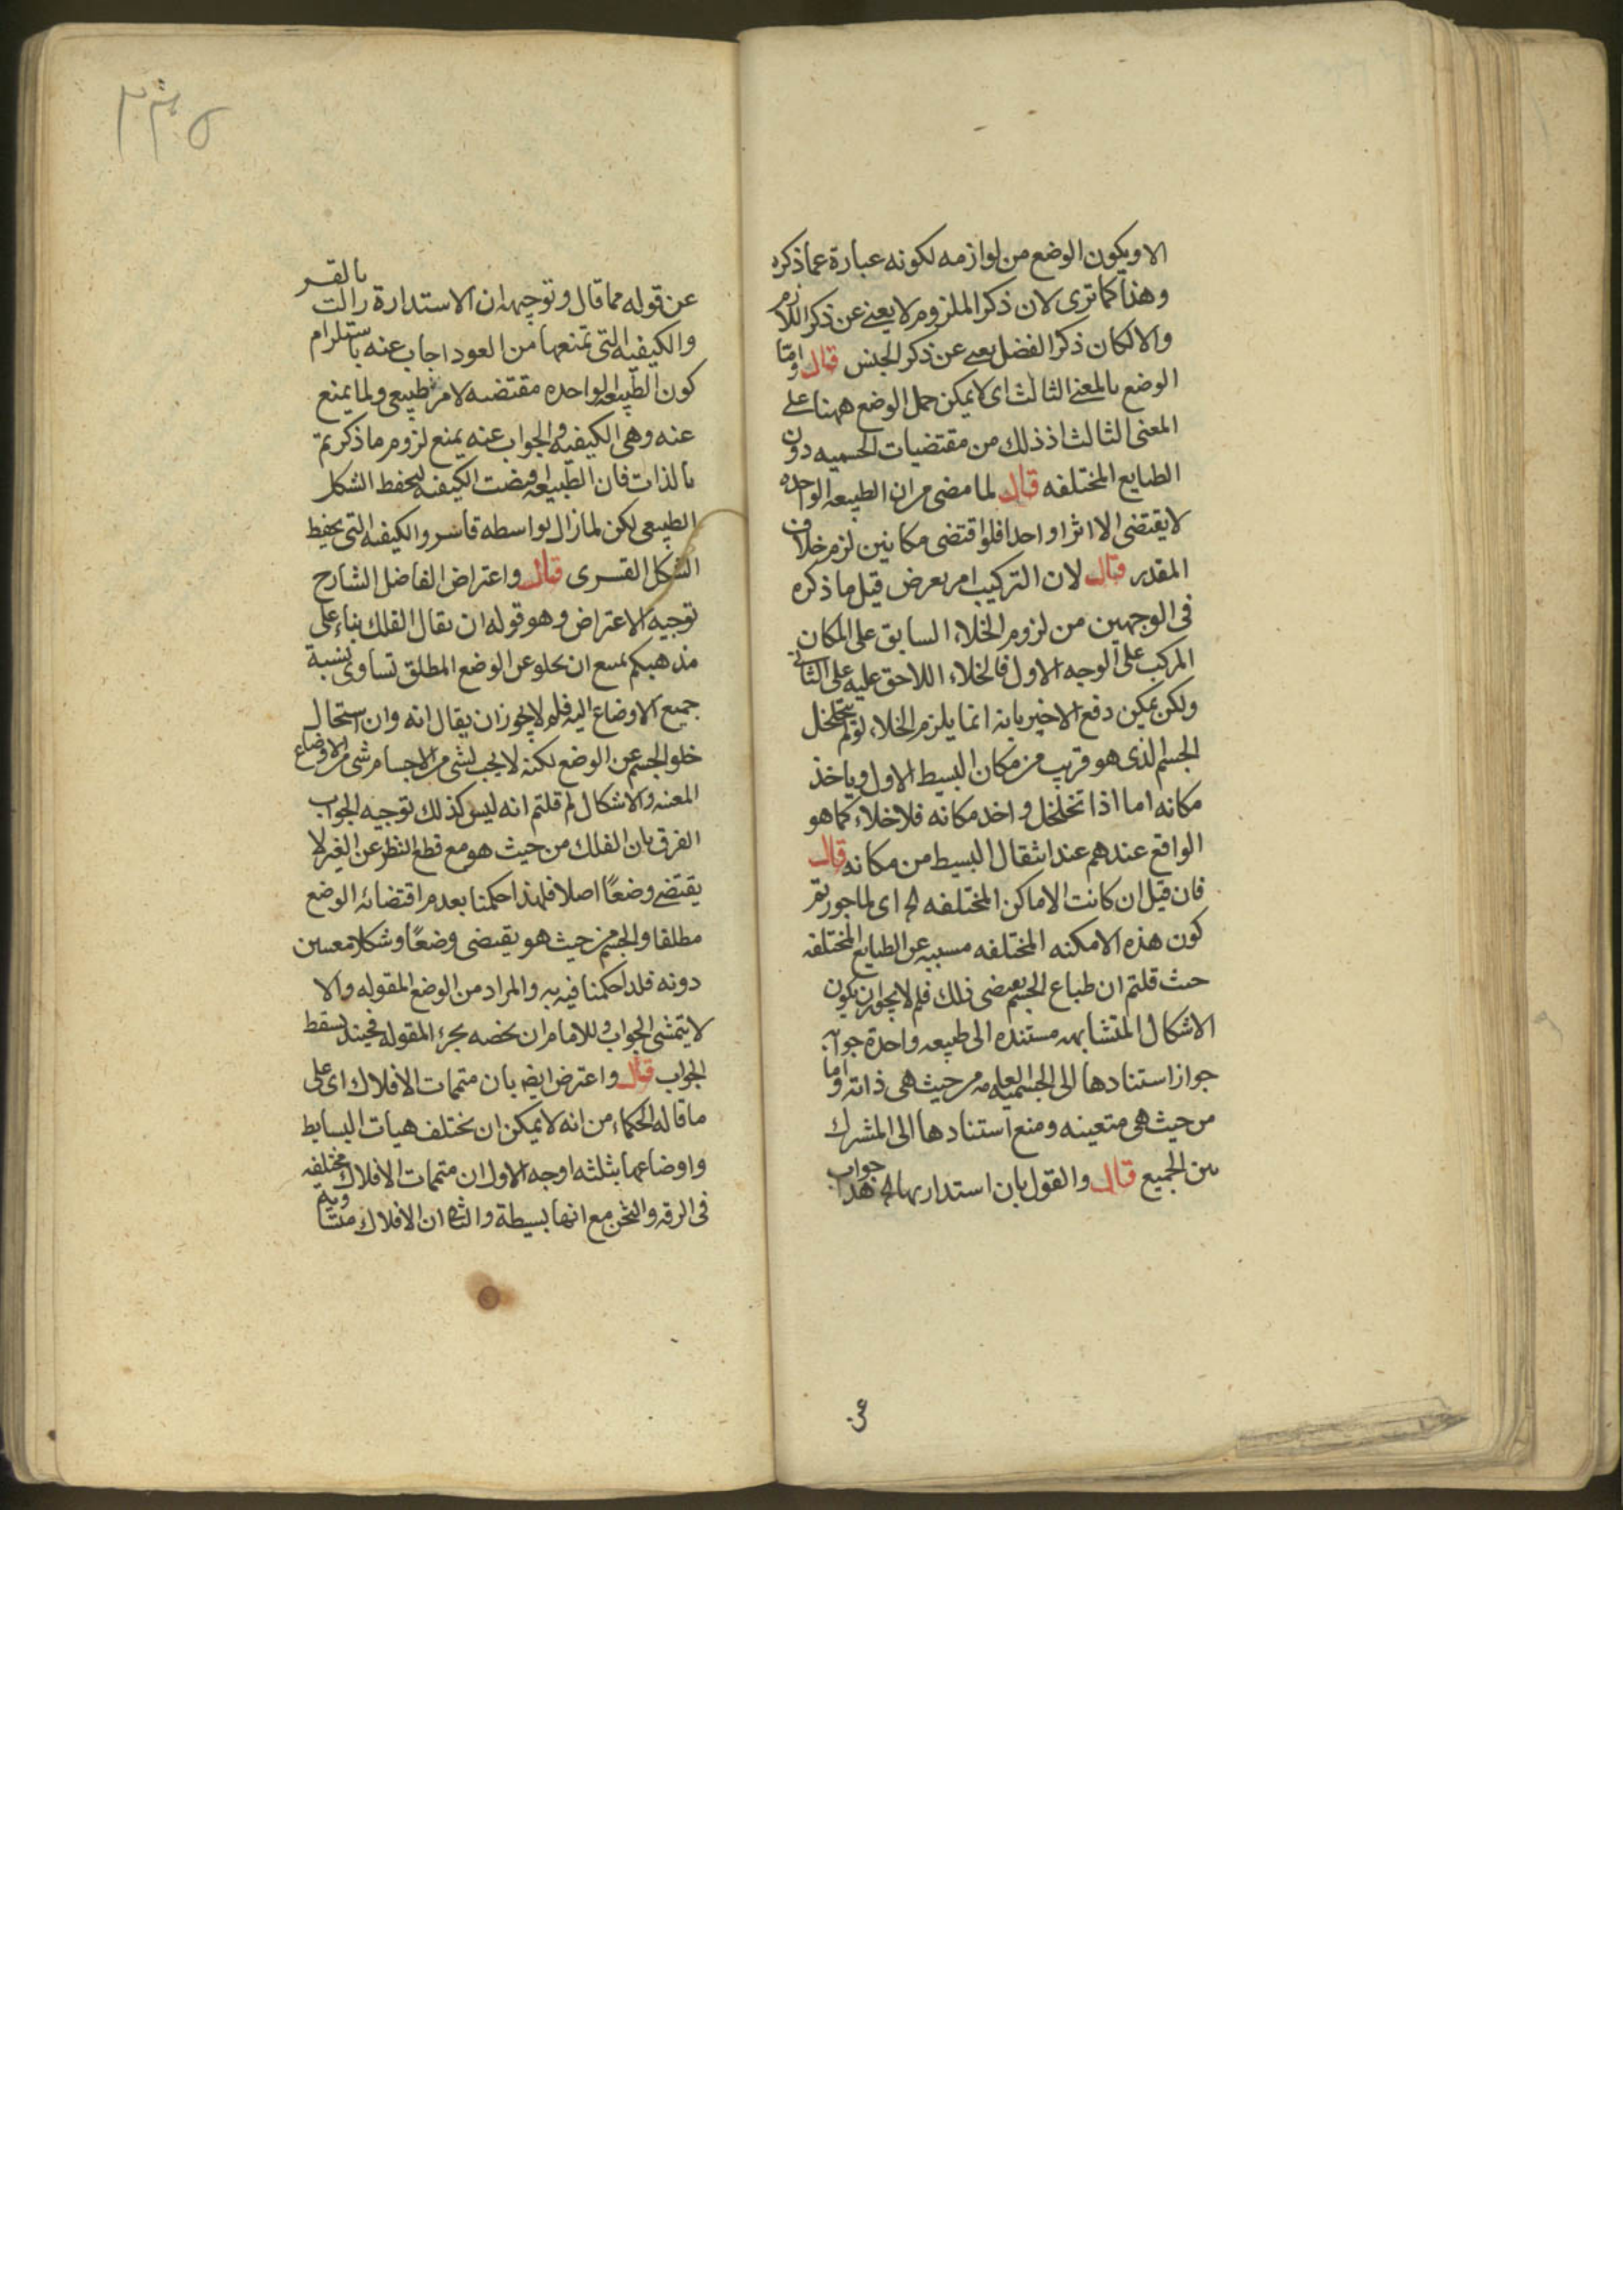 الا ويكون الوضع من لوازمه لكونه عبارة عما ذكره
وهذا كما ترى لان ذكر الملزوم لا يعنى عن ذكر اللازم
والا لكان ذكر الفضل يعنى عن ذكر الجنس قال واما
الوضع بالمعنى الثالث اى لا يمكن حمل الوضع ههنا على
المعنى الثالث اذ ذلك من مقتضيات الجسميه دون
الطبايع المختلفه قال لما مضى من ان الطبيعه الواحده
لا يقتضى الا اثرا واحدا فلو اقتضى مكانين لزم خلاف
المقدر قال لان التركيب امر يعرض قيل ما ذكره
فى الوجهين من لزوم الخلاء السابق على المكان
المركب على الوجه الاول فالخلاء اللاحق عليه على الثانى
ولكن يمكن دفع الاخير بانه انما يلزم الخلاء لو لم يتخلخل
الجسم الذى هو قريب من مكان البسيط الاول وياخذ
مكانه اما اذا تخلخل واخد مكانه فلا خلاء كما هو
الواقع عندهم عند انتقال البسيط من مكانه قال
فان قيل ان كانت الاماكن المختلفه الخ اى لما جوزتم
كون هذه الامكنه المختلفه مسببه عن الطبايع المختلفه
حيث قلتم ان طباع الجسم يقتضى ذلك فلم لا يجوز ان يكون
الاشكال المتشابهه مستنده الى طبيعه واحدة جوابه
جواز استنادها الى الجسميه من حيث هى ذاته واما
من حيث هى متعينه ومنع استنادها الى المشرك
بين الجميع قال والقول بان استدارتها الخ هذا جواب
عن
٢٣٥
عن قوله مما قال وتوجيهه ان الاستدارة زالت بالقسر
والكيفيه التى تمنعها من العود اجاب عنه باستلزام
كون الطبيعه الواحده مقتضيه لامر طبيعى ولما يمنع
عنه وهى الكيفيه والجواب عنه يمنع لزوم ما ذكرتم
بالذات فان الطبيعه اقتضت الكيفيه ليحفظ الشكل
الطبيعى لكن لما زال بواسطه قاسر والكيفيه التى يحفظ
الشكل القسرى قال واعتراض الفاضل الشارح
توجيه الاعتراض وهو قوله ان يقال الفلك بناء على
مذهبكم يمتنع ان يخلو عن الوضع المطلق تساوى بنسبة
جميع الاوضاع اليه فلم لا يجوز ان يقال انه وان استحال
خلو الجسم عن الوضع لكنه لا يجب لشى من الاجسام شى من الاوضاع
المعينه والاشكال لم قلتم انه ليس كذلك توجيه الجواب
الفرق بان الفلك من حيث هو مع قطع النظر عن الغير لا
يقتضى وضعًا اصلا فلهذا حكمنا بعدم اقتضائه الوضع
مطلقا والجسم من حيث هو يقتضى وضعًا وشكلا معينين
دونه فلذا حكمنا فيه به والمراد من الوضع المقوله والا
لا يتمشى الجواب وللامام ان يخصه بجزء المقوله فحينئذ يسقط
الجواب قال واعترض ايضه بان متممات الافلاك اى على
ما قاله الحكماء من انه لا يمكن ان يختلف هيات البسايط
واوضاعها بثلثه اوجه الاول ان متممات الافلاك مختلفه
فى الرقه والثخن مع انها بسيطة والثانى ان الافلاك متساويه